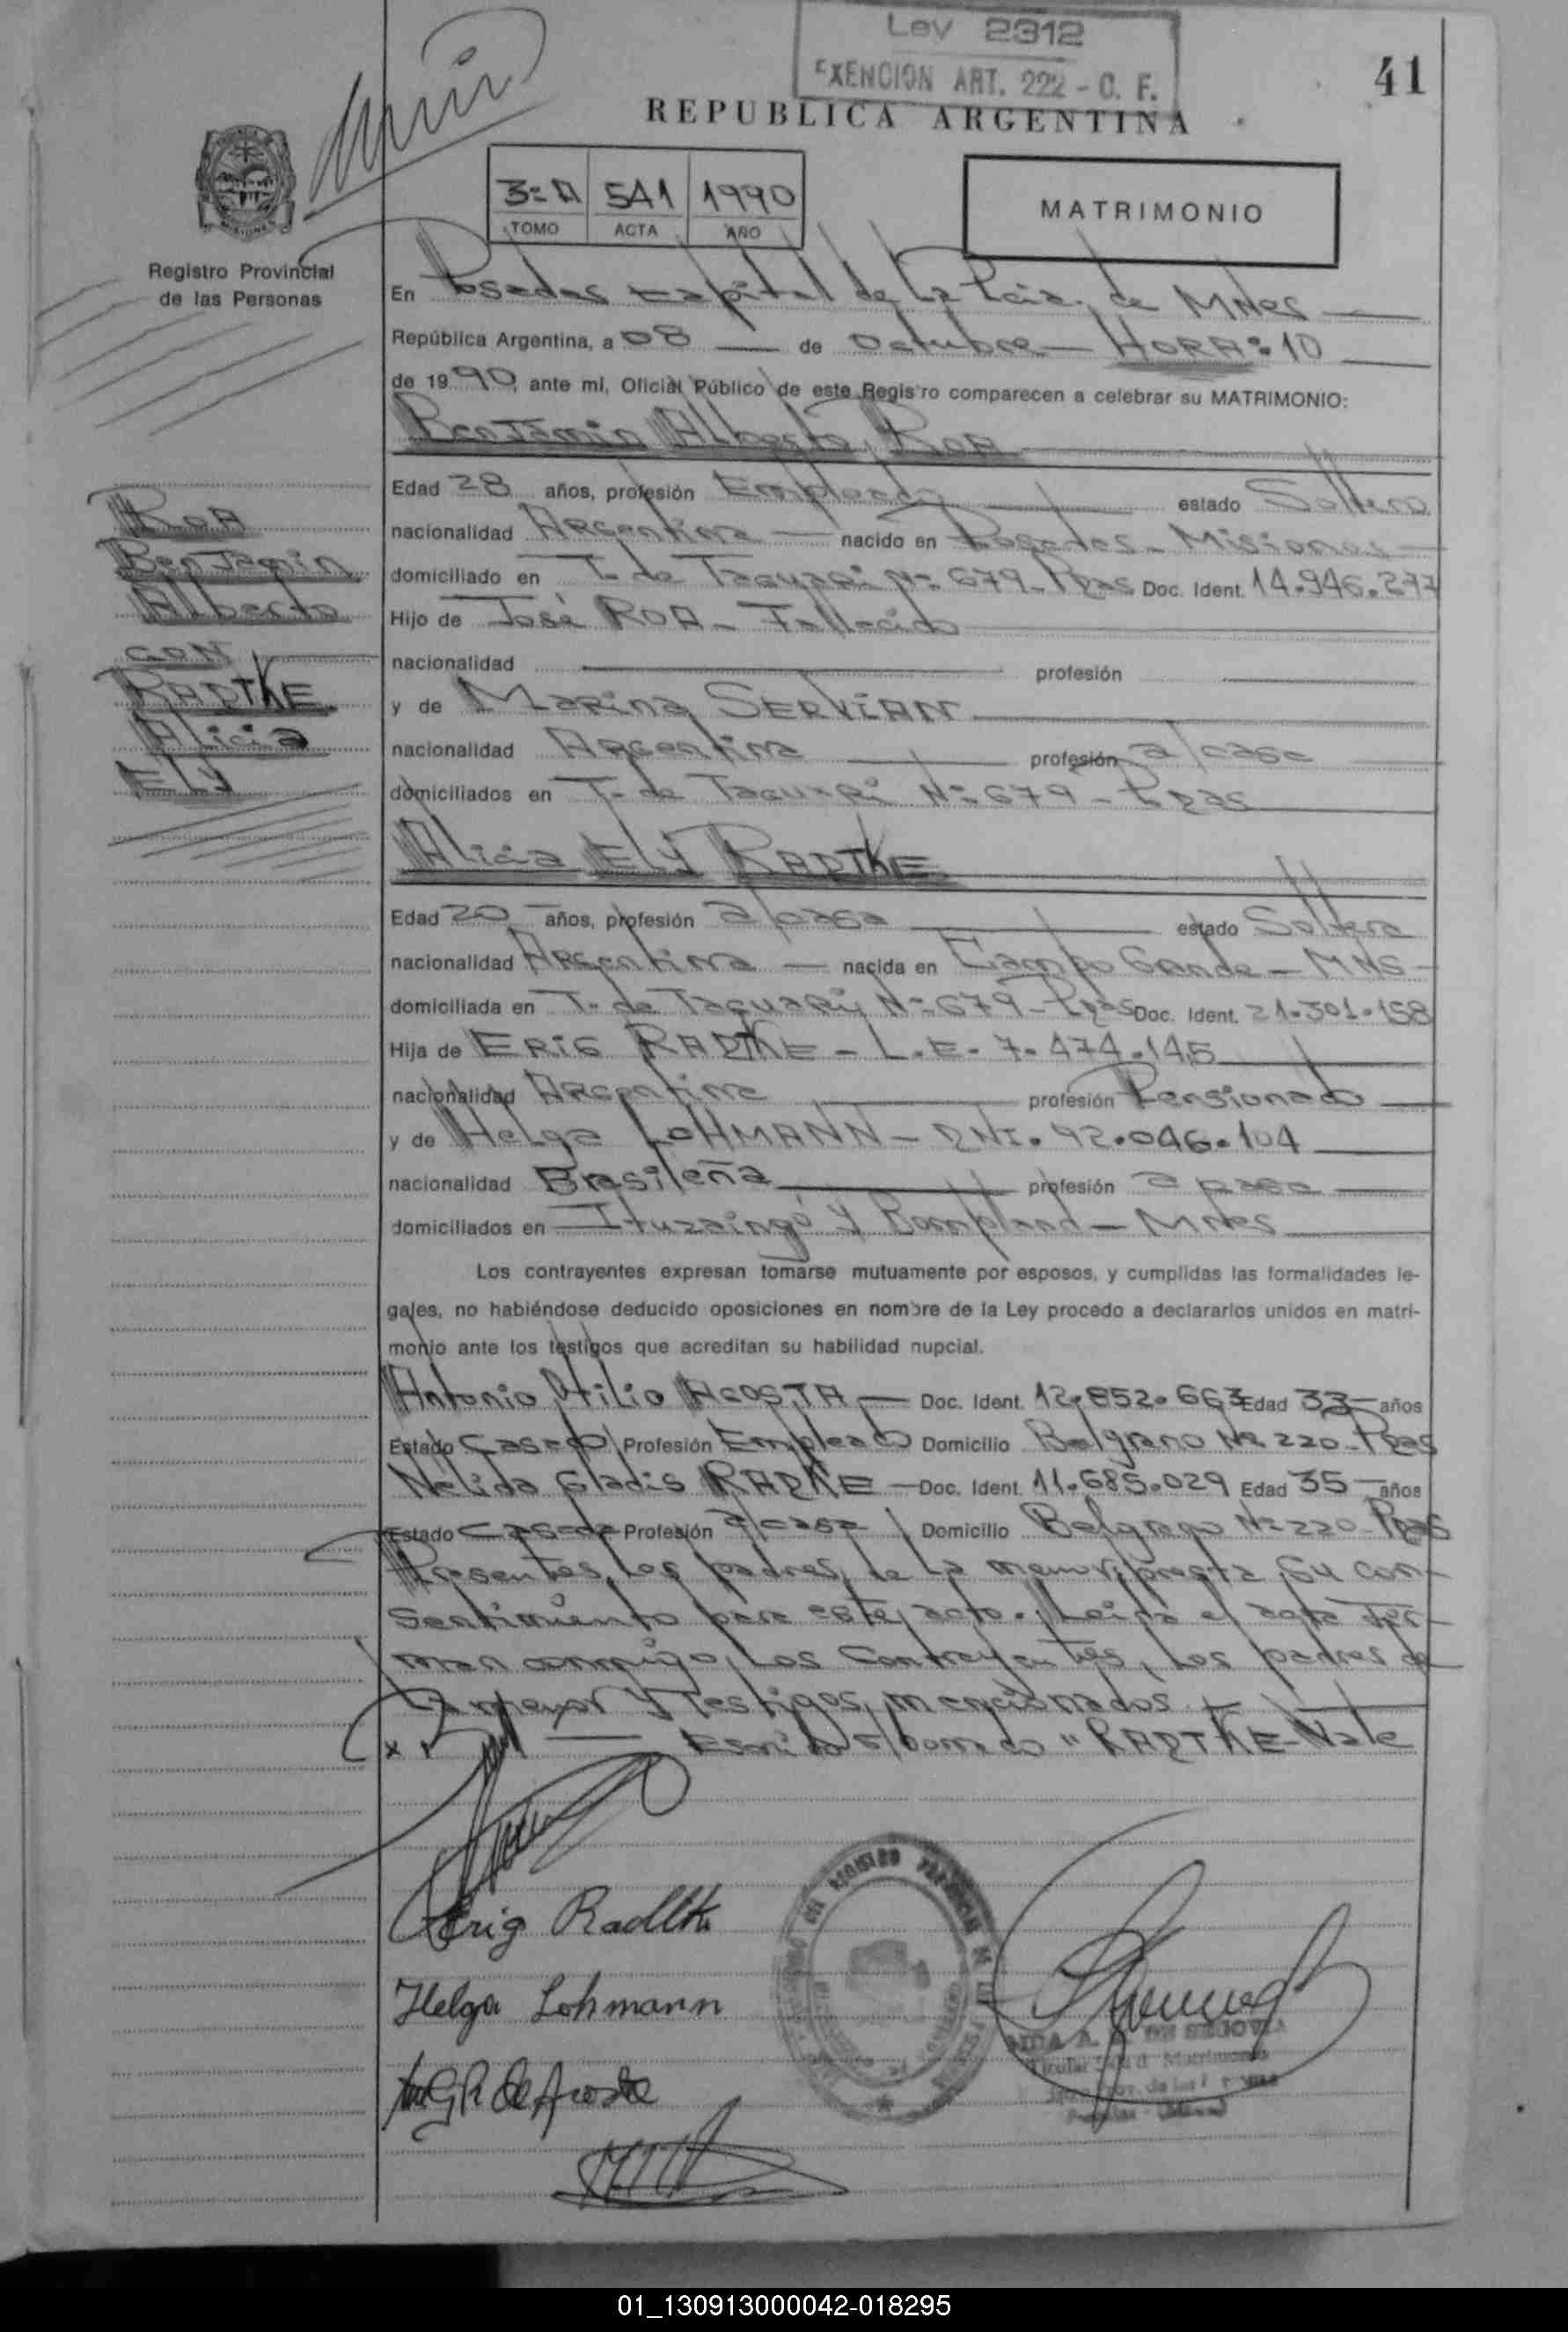 Ley 2312
EXENCION ART. 222 - C. F.
41
REPUBLICA ARGENTINA
3=A 541 1990
TOMO ACTA AÑO
MATRIMONIO
Registro Provincial
de las Personas
En Posadas Capital de La Pcia. de MNes
República Argentina, a 08 de Octubre HORA: 10
de 1990 ante mí, Oficial Público de este Registro comparecen a celebrar su MATRIMONIO:
Benjamin Alberto ROA
Edad 28 años, profesión Empleado estado Soltero
nacionalidad Argentina nacido en Posadas - Misiones
domiciliado en T. de Tacuari Nº 679 - Pdas Doc. Ident. 14.946.277
Hijo de José ROA - Fallecido
nacionalidad profesión
y de Marina SERVIAN
nacionalidad Argentina profesión a/casa
domiciliados en T. de Tacuari Nº 679 - Pdas
ROA
Benjamin
Alberto
CON
RADTKE
Alicia
ELY
Alicia ELY RADTKE
Edad 20 años, profesión a/casa estado Soltera
nacionalidad Argentina nacida en Campo Grande - MNS
domiciliada en T. de Tacuari Nº 679 - Pdas Doc. Ident. 21.301.158
Hija de ERIG RADTKE - L.E. 7.474.145
nacionalidad Argentina profesión Pensionado
y de Helga LOHMANN - DNI. 92.046.104
nacionalidad Brasileña profesión a casa
domiciliados en Ituzaingó y Bompland - MNes
Los contrayentes expresan tomarse mutuamente por esposos, y cumplidas las formalidades le-
gales, no habiéndose deducido oposiciones en nombre de la Ley procedo a declararlos unidos en matri-
monio ante los testigos que acreditan su habilidad nupcial.
Antonio Otilio ACOSTA Doc. Ident. 12.852.663 Edad 33 años
Estado Casado Profesión Empleado Domicilio Belgrano Nº 220 - Pdas
Nelida Gladis RADKE Doc. Ident. 11.685.029 Edad 35 años
Estado Casada Profesión a/casa Domicilio Belgrano Nº 220 Pdas
Presentes los padres de la menor, presta su con-
sentimiento para este acto. Leída el acta fir-
man conmigo, los Contrayentes, los padres de
la menor y testigos mencionados
Escrito s/borrado "RADTKE - Vale
Erig Radtke
Helga Lohmann
N G R de Acosta
AIDA A. DE SEGOVIA
01_130913000042-018295